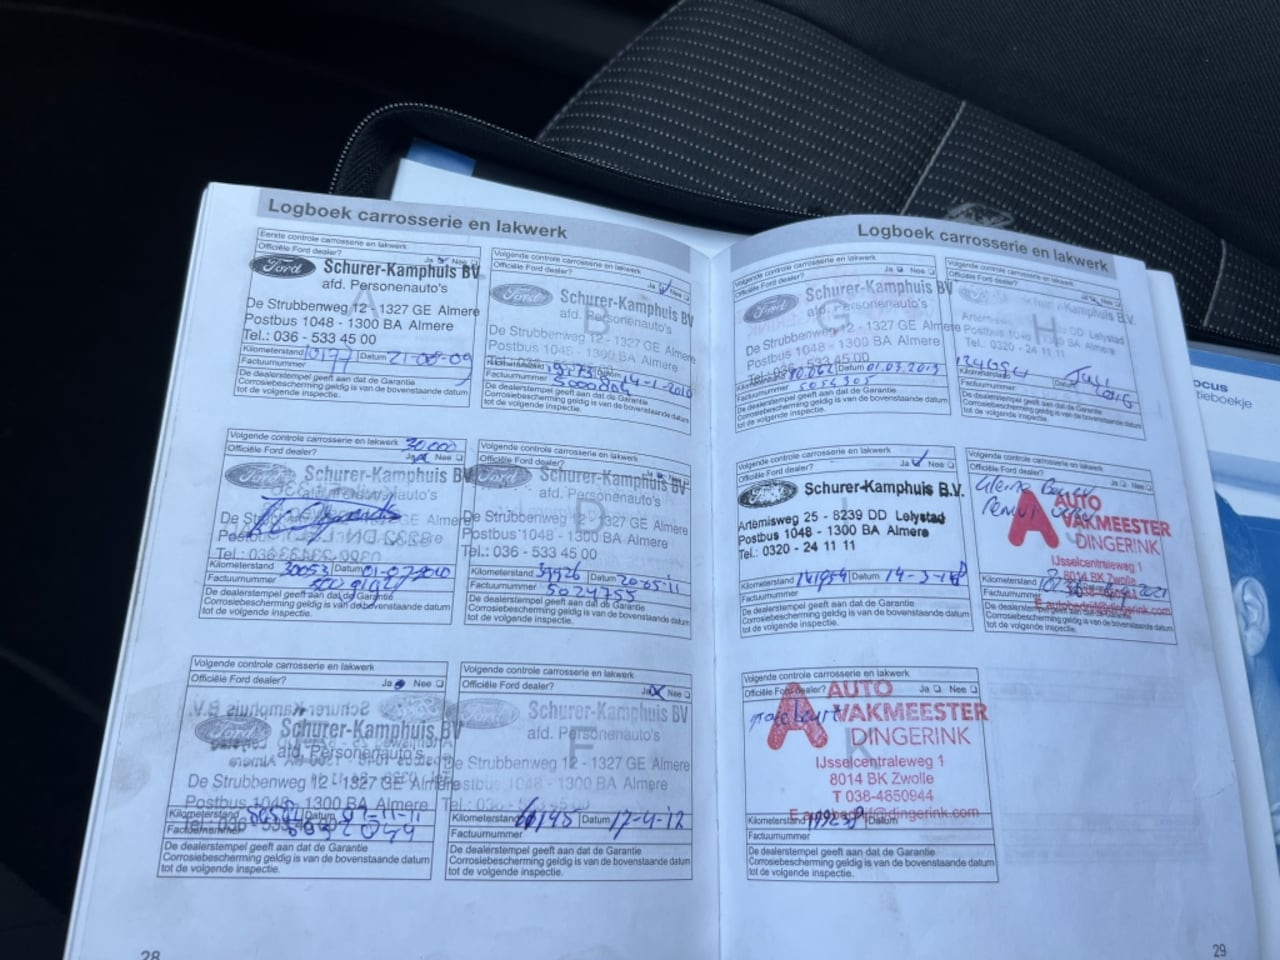 Logboek carrosserie en lakwerk
Eerste controle carrosserie en lakwerk
Officiële Ford dealer? Ja Nee
Ford
Schurer-Kamphuis BV
afd. Personenauto's
A
De Strubbenweg 12 - 1327 GE Almere
Postbus 1048 - 1300 BA Almere
Tel.: 036 - 533 45 00
Kilometerstand 10177 Datum 21-08-09
Factuurnummer
De dealerstempel geeft aan dat de Garantie
Corrosiebescherming geldig is van bovenstaande datum
tot de volgende inspectie.
Volgende controle carrosserie en lakwerk
Officiële Ford dealer? Ja Nee
Ford
Schurer-Kamphuis BV
afd. Personenauto's
B
De Strubbenweg 12 - 1327 GE Almere
Postbus 1048 - 1300 BA Almere
Kilometerstand Datum 14-1-2010
Factuurnummer
De dealerstempel geeft aan dat de Garantie
Corrosiebescherming geldig is van de bovenstaande datum
tot de volgende inspectie.
Volgende controle carrosserie en lakwerk 30.000
Officiële Ford dealer? Ja Nee
Ford
Schurer-Kamphuis BV
Kilometerstand 30053 Datum 01-07-2010
Factuurnummer
De dealerstempel geeft aan dat de Garantie
Corrosiebescherming geldig is van de bovenstaande datum
tot de volgende inspectie.
Volgende controle carrosserie en lakwerk
Officiële Ford dealer?
Ford
Schurer-Kamphuis BV
afd. Personenauto's
D
De Strubbenweg 12 - 1327 GE Almere
Postbus 1048 - 1300 BA Almere
Tel.: 036 - 533 45 00
Kilometerstand 39926 Datum 20-05-11
Factuurnummer 5024755
De dealerstempel geeft aan dat de Garantie
Corrosiebescherming geldig is van de bovenstaande datum
tot de volgende inspectie.
Volgende controle carrosserie en lakwerk
Officiële Ford dealer? Ja Nee
Ford
Schurer-Kamphuis BV
afd. Personenauto's
De Strubbenweg 12 - 1327 GE Almere
Postbus 1048 - 1300 BA Almere
Kilometerstand Datum
Factuurnummer
De dealerstempel geeft aan dat de Garantie
Corrosiebescherming geldig is van de bovenstaande datum
tot de volgende inspectie.
Volgende controle carrosserie en lakwerk
Officiële Ford dealer? Ja Nee
Schurer-Kamphuis BV
afd. Personenauto's
F
De Strubbenweg 12 - 1327 GE Almere
Postbus 1048 - 1300 BA Almere
Kilometerstand Datum 17-4-12
Factuurnummer
De dealerstempel geeft aan dat de Garantie
Corrosiebescherming geldig is van de bovenstaande datum
tot de volgende inspectie.
28
Logboek carrosserie en lakwerk
Volgende controle carrosserie en lakwerk
Officiële Ford dealer? Ja Nee
Ford
Schurer-Kamphuis BV
afd. Personenauto's
G
De Strubbenweg 12 - 1327 GE Almere
Postbus 1048 - 1300 BA Almere
Kilometerstand Datum 01.03.2013
Factuurnummer 5054305
De dealerstempel geeft aan dat de Garantie
Corrosiebescherming geldig is van de bovenstaande datum
tot de volgende inspectie.
Volgende controle carrosserie en lakwerk
Officiële Ford dealer?
H
DD Lelystad
Almere
Tel.: 0320 - 24 11 11
Kilometerstand
Factuurnummer
De dealerstempel geeft aan dat de Garantie
Corrosiebescherming geldig is van de bovenstaande datum
tot de volgende inspectie.
Volgende controle carrosserie en lakwerk
Officiële Ford dealer? Ja Nee
Ford
Schurer-Kamphuis B.V.
Artemisweg 25 - 8239 DD Lelystad
Postbus 1048 - 1300 BA Almere
Tel.: 0320 - 24 11 11
Kilometerstand 141954 Datum
Factuurnummer
De dealerstempel geeft aan dat de Garantie
Corrosiebescherming geldig is van de bovenstaande datum
tot de volgende inspectie.
Volgende controle carrosserie en lakwerk
Officiële Ford dealer? Ja Nee
AUTO
VAKMEESTER
DINGERINK
IJsselcentraleweg 1
8014 BK Zwolle
Kilometerstand 2021
Factuurnummer
De dealerstempel geeft aan dat de Garantie
Corrosiebescherming geldig is van de bovenstaande datum
tot de volgende inspectie.
Volgende controle carrosserie en lakwerk
Officiële Ford dealer? Ja Nee
AUTO
VAKMEESTER
DINGERINK
K
IJsselcentraleweg 1
8014 BK Zwolle
T 038-4650944
E autobedrijf@dingerink.com
Kilometerstand Datum
Factuurnummer
De dealerstempel geeft aan dat de Garantie
Corrosiebescherming geldig is van de bovenstaande datum
tot de volgende inspectie.
29
ocus
tieboekje